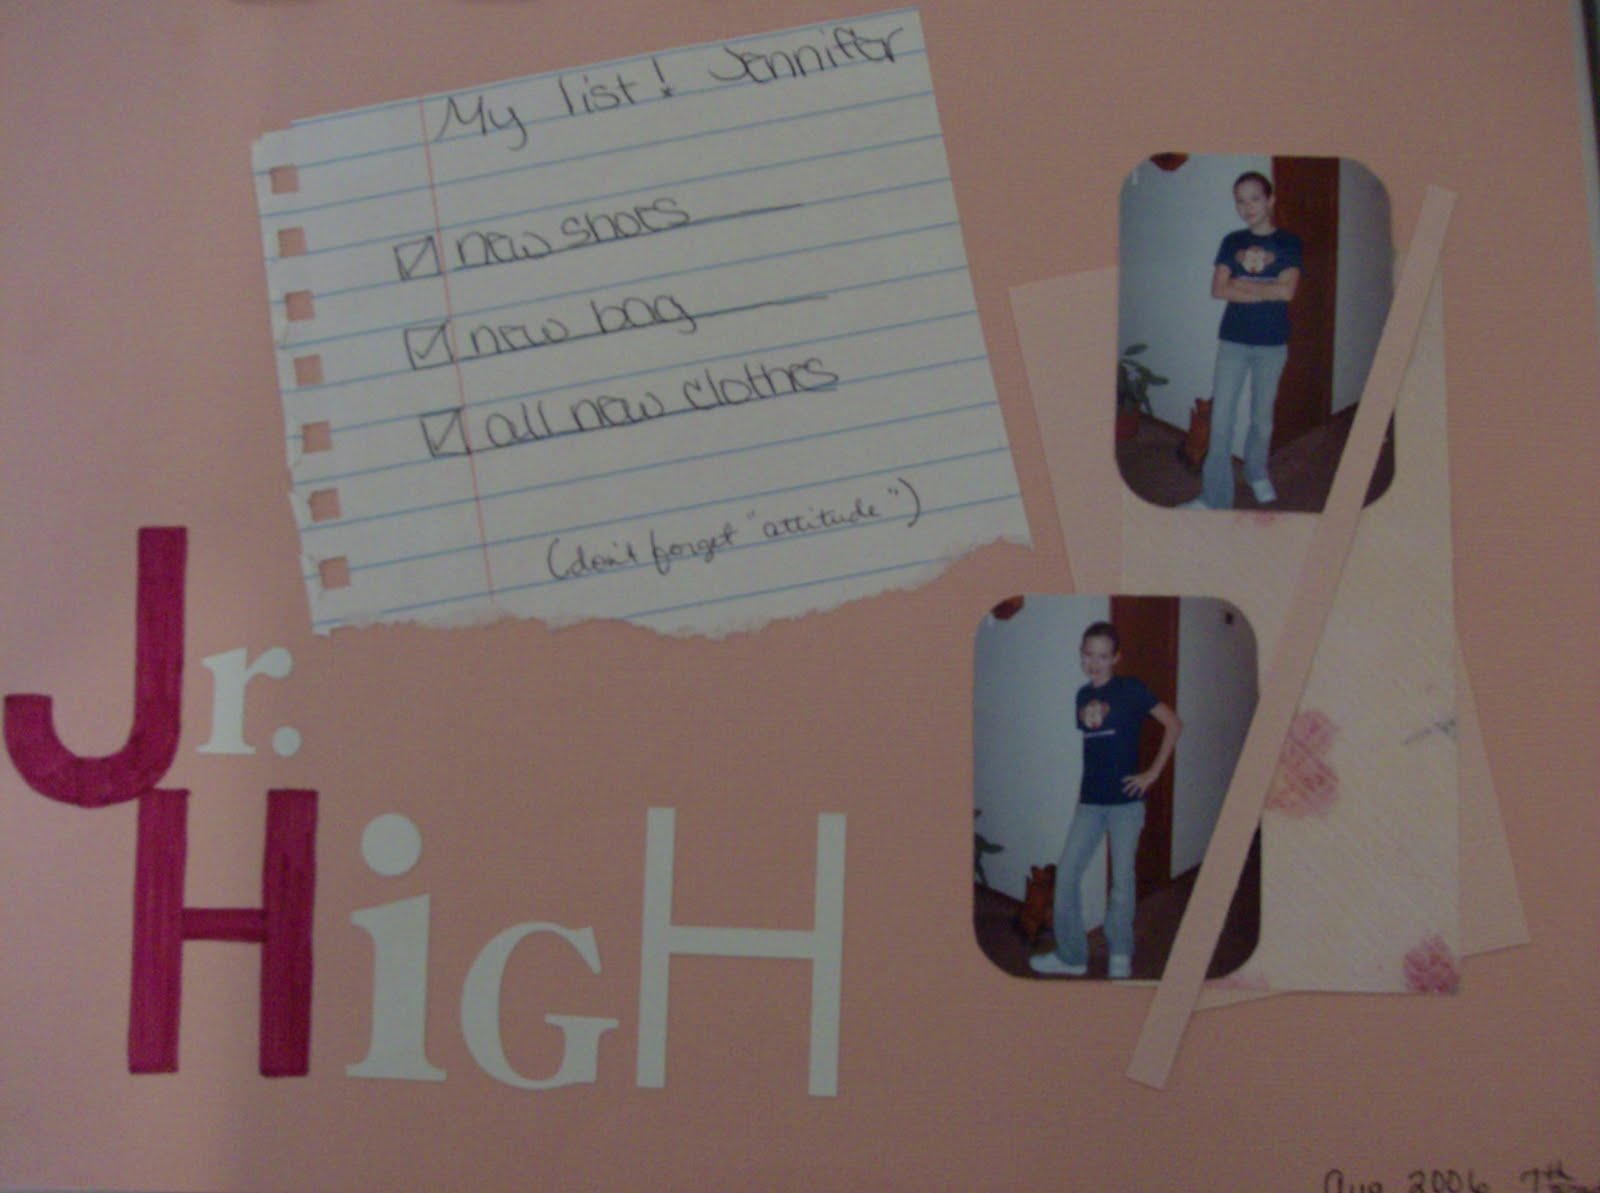 My list! Jennifer
new shoes
new bag
all new clothes
(don't forget "attitude")
Jr.
HiGH
Aug 2006 7th